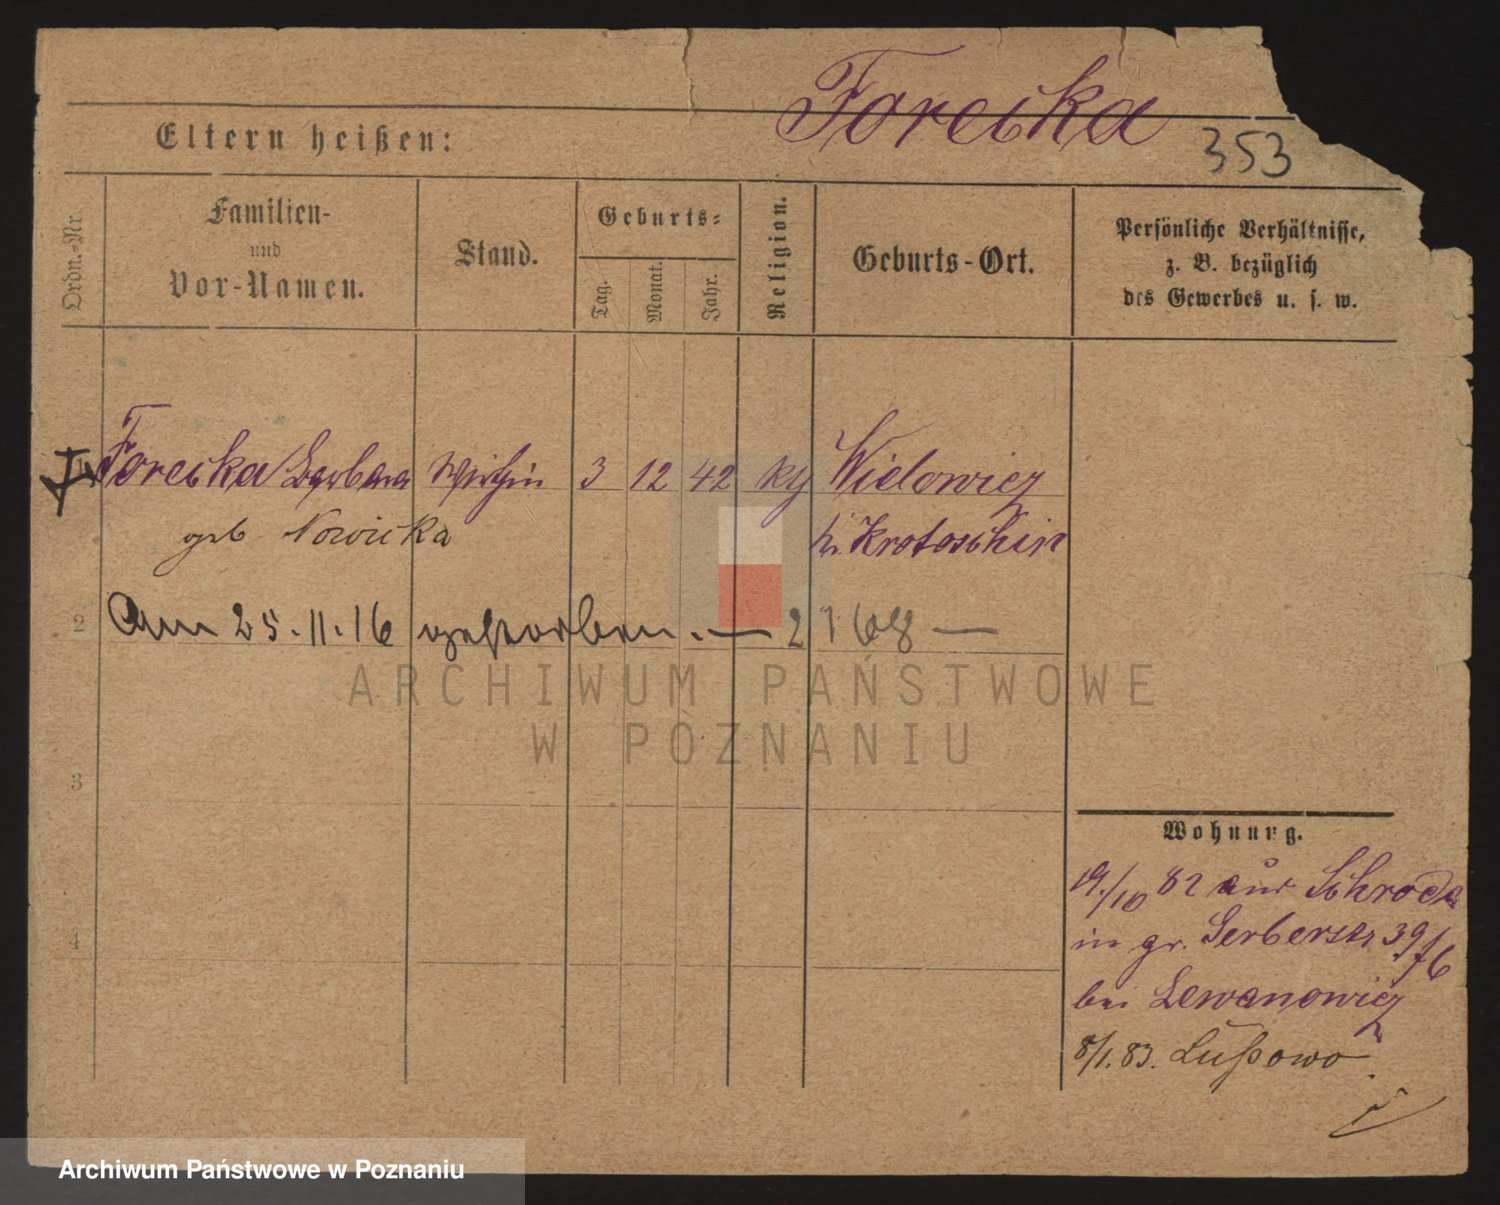 Forecka
353
Eltern heißen:
Ordn.-Nr.
Familien-
und
Vor-Namen.
Stand.
Geburts-
Tag.
Monat.
Jahr.
Religion.
Geburts-Ort.
Persönliche Verhältnisse,
z. B. bezüglich
des Gewerbes u. s. w.
Forecka Barbara Wirthin 3 12 42 Wielowicz
geb Nowicka Krotoschin
2 Am 25.11.16 gestorben. — 2168 —
ARCHIWUM PAŃSTWOWE
W POZNANIU
3
4
Wohnung.
19./10 82 aus Schroda
in gr. Gerberstr 39/6
bei Lewanowicz
8/1.83. Lussowo
Archiwum Państwowe w Poznaniu